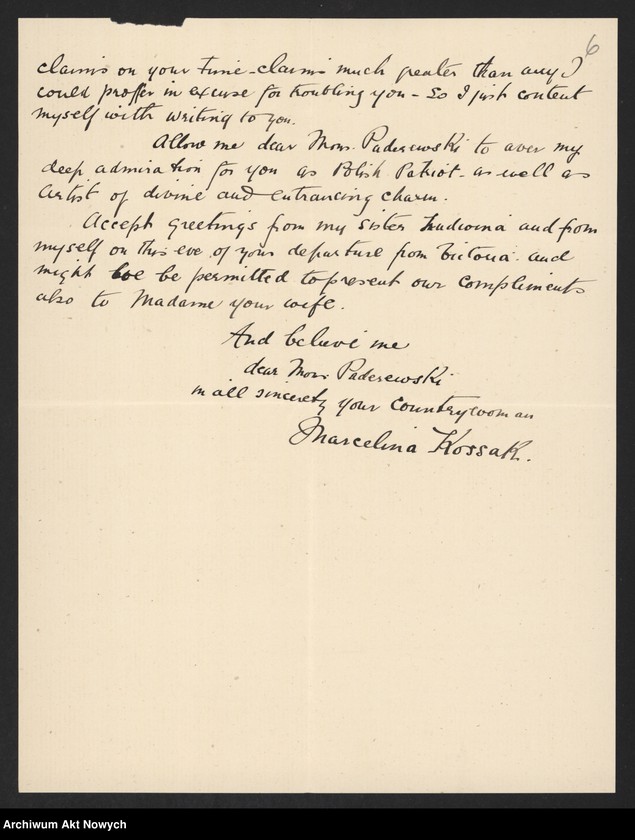 6
claims on your time - claims much greater than any I
could proffer in excuse for troubling you - So I just content
myself with writing to you.
Allow me dear Mons. Paderewski to aver my
deep admiration for you as Polish Patriot - as well as
artist of divine and entrancing charm.
Accept greetings from my sister Ludwina and from
myself on this eve of your departure from Victoria - and
might we be permitted to present our compliments
also to Madame your wife.
And believe me
dear Mons. Paderewski
in all sincerety your countrywoman
Marcelina Kossak.
Archiwum Akt Nowych